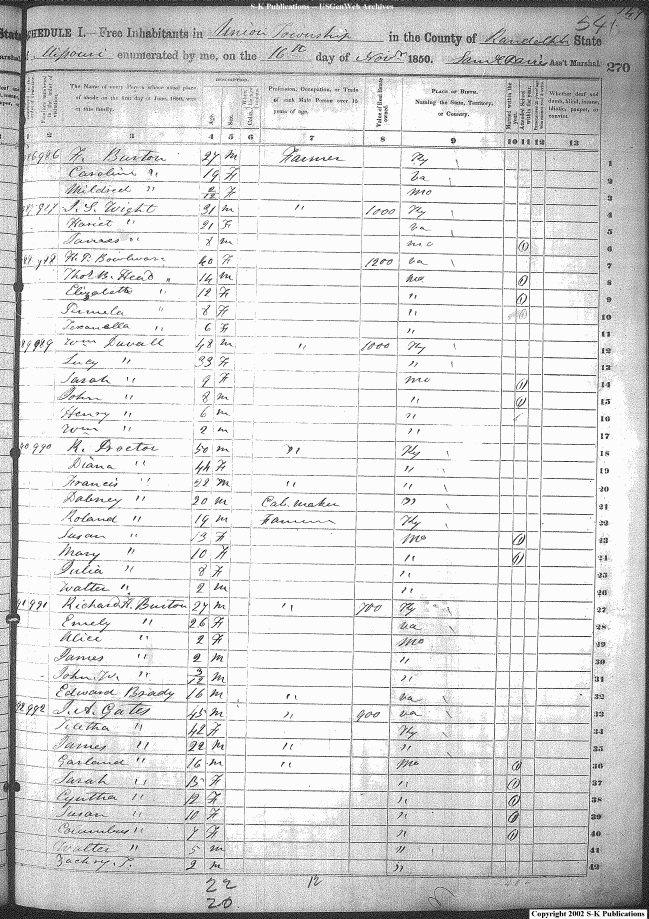 S-K Publications -- USGenWeb Archives
SCHEDULE I.—Free Inhabitants in Union Township in the County of Randolph State
of Missouri enumerated by me, on the 16th day of Novr 1850. Ass't Marshal. 270
The Name of every Person whose usual place of abode on the first day of June, 1850, was in this family.
DESCRIPTION.
Age. Sex.
Profession, Occupation, or Trade of each Male Person over 15 years of age.
Value of Real Estate owned.
PLACE OF BIRTH.
Naming the State, Territory, or Country.
Married within the year.
Whether deaf and dumb, blind, insane, idiotic, pauper, or convict.
1 2 3 4 5 6 7 8 9 10 11 12 13
986 F. Burton 27 m Farmer Ky 1
Caroline " 19 F Va 2
Mildred " 2/12 F Mo 3
J. S. Wight 31 m " 1000 Ky 4
Hariet " 21 F Va 5
James " m Mo 1 6
H. P. 40 F 1200 Va 7
Thos. B. Head " 14 m Mo 1 8
Elizabeth " 12 F " 1 9
" 8 F " 1 10
" 6 F " 11
989 Wm Duvall 48 m " 1000 Ky 12
Lucy " 33 F " 13
Sarah " 9 F Mo 1 14
John " 8 m " 1 15
Henry " 6 m " 16
Wm " 2 m " 17
990 R. Proctor 50 m " Ky 18
Diana " 44 F " 19
Francis " 22 m " " 20
Dabney " 20 m Cab. maker " 21
Roland " 19 m Farmer Ky 22
Susan " 13 F Mo 1 23
Mary " 10 F " 1 24
Julia " 8 F " 25
Walter " 2 m " 26
991 Richard H. Burton 27 m " 700 Ky 27
Emely " 26 F Va 28
Alice " 2 F Mo 29
James " 2 m " 30
John W. " 3/12 m " 31
Edward Brady 16 m " Va 32
992 J. A. Gates 45 m " 900 Va 33
" 42 F Ky 34
James " 22 m " " 35
Garland " 16 m " Mo 1 36
Sarah " 15 F " 1 37
Cyntha " 12 F " 1 38
Susan " 10 F " 1 39
Columbus " 7 F " 1 40
Walter " 5 m " 41
Zachry T. 2 m " 42
22 12
20
Copyright 2002 S-K Publications